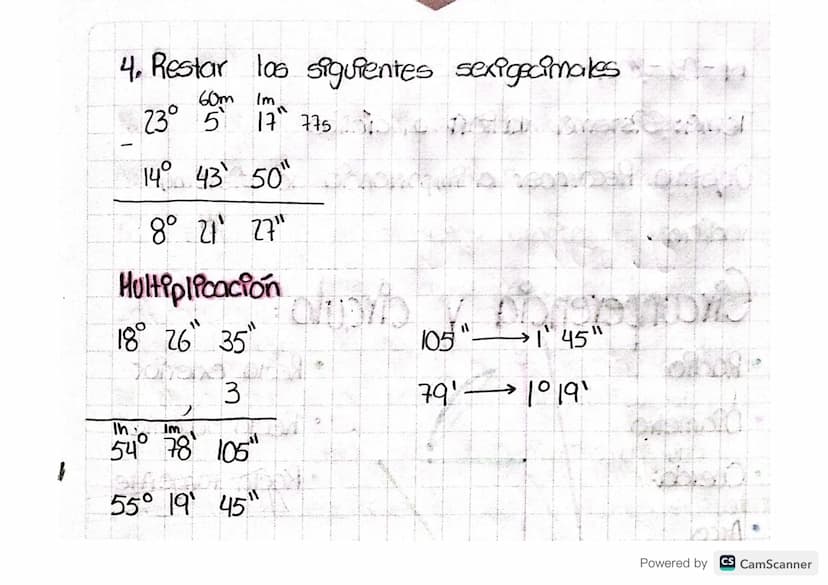 4. Restar los siguientes sexigecimales
60m 1m
23° 5' 17" 77s
-
14° 43' 50"
8° 21' 27"
Multiplicación
18° 26" 35"
3
1h 1m
54° 78' 105"
55° 19' 45"
105" → 1' 45"
79' → 1° 19'
Powered by CS CamScanner